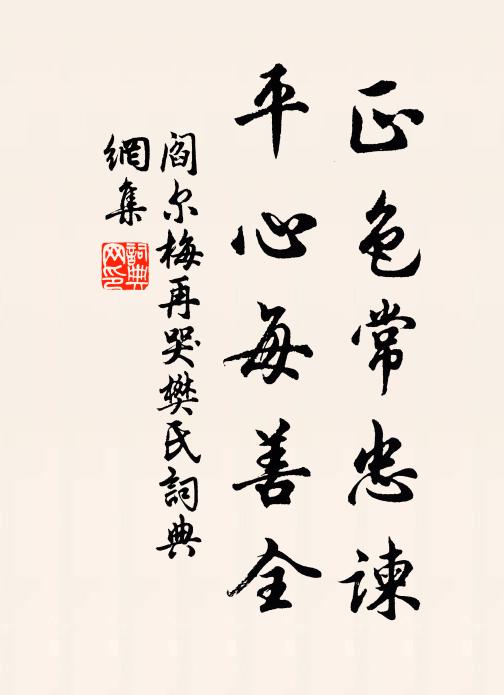 正色常忠諫
平心每善全
閻尔梅再哭樊氏詞典
網集
詞典
网印